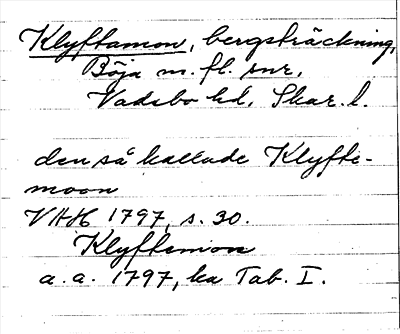 Klyftamon, bergsträckning,
Böja m. fl. snr,
Vadsbo hd, Skar. l.
den så kallade Klyfte-
moon
VAH 1797, s. 30.
Klyftemon
a. a. 1797, ka Tab. I.